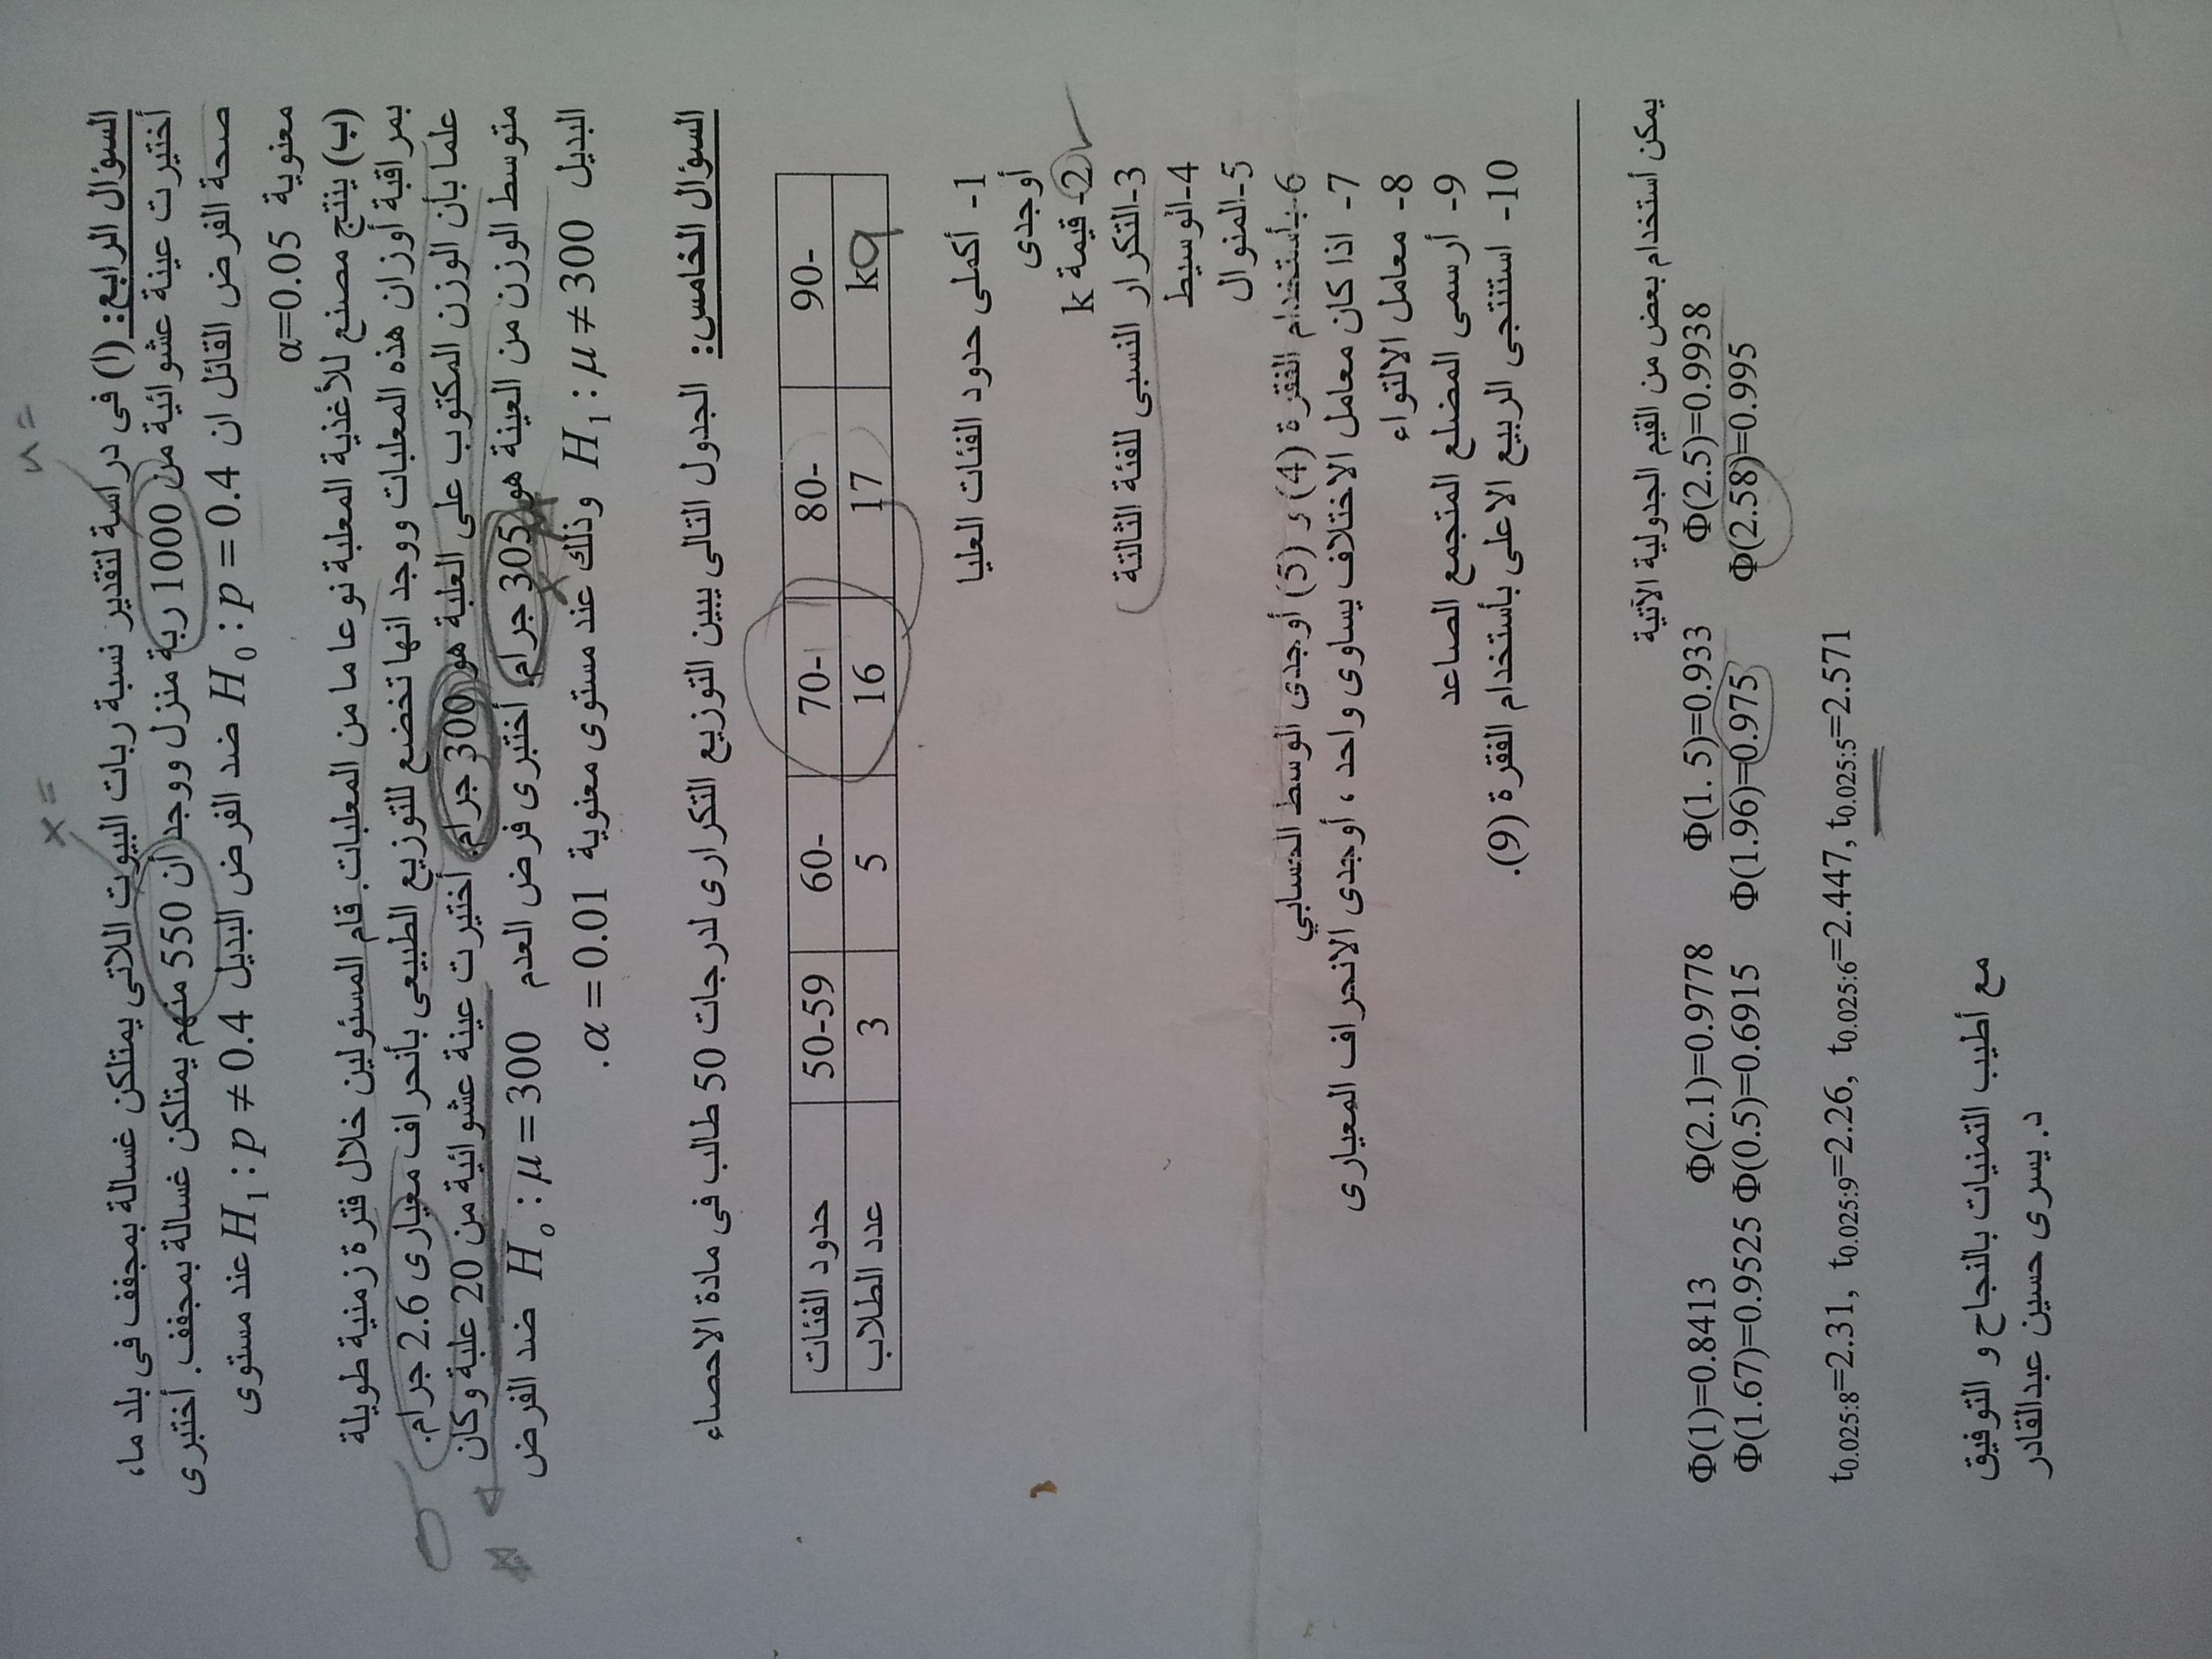 السؤال الرابع: (ا) فى دراسة لتقدير نسبة ربات البيوت اللاتى يمتلكن غسالة بمجفف فى بلد ما،
أختيرت عينة عشوائية من 1000 ربة منزل ووجد أن 550 منهم يمتلكن غسالة بمجفف. أختبرى
صحة الفرض القائل ان H0 : p = 0.4 ضد الفرض البديل H1 : p ≠ 0.4 عند مستوى
معنوية α=0.05
(ب) ينتج مصنع للأغذية المعلبة نوعا ما من المعلبات. قام المسئولين خلال فترة زمنية طويلة
بمراقبة أوزان هذه المعلبات ووجد انها تخضع للتوزيع الطبيعى بأنحراف معيارى 2.6 جرام.
علما بأن الوزن المكتوب على العلبة هو 300 جرام. أختيرت عينة عشوائية من 20 علبة وكان
متوسط الوزن من العينة هو 305 جرام. أختبرى فرض العدم H° : μ = 300 ضد الفرض
البديل H1 : μ ≠ 300 وذلك عند مستوى معنوية α = 0.01.
السؤال الخامس: الجدول التالى يبين التوزيع التكرارى لدرجات 50 طالب فى مادة الاحصاء
حدود الفئات 50-59 60- 70- 80- 90-
عدد الطلاب 3 5 16 17 k 9
1- أكملى حدود الفئات العليا
أوجدى
2- قيمة k
3-التكرار النسبى للفئة الثالثة
4-الوسيط
5-المنوال
6-بأستخدام الفقرة (4) و (5) أوجدى الوسط الحسابي
7- اذا كان معامل الاختلاف يساوى واحد ، أوجدى الانحراف المعيارى
8- معامل الالتواء
9- أرسمى المضلع المتجمع الصاعد
10- استنتجى الربيع الاعلى بأستخدام الفقرة (9).
يمكن أستخدام بعض من القيم الجدولية الآتية
Φ(1)=0.8413 Φ(2.1)=0.9778 Φ(1.5)=0.933 Φ(2.5)=0.9938
Φ(1.67)=0.9525 Φ(0.5)=0.6915 Φ(1.96)=0.975 Φ(2.58)=0.995
t0.025:8=2.31, t0.025:9=2.26, t0.025:6=2.447, t0.025:5=2.571
مع أطيب التمنيات بالنجاح و التوفيق
د. يسرى حسين عبدالقادر